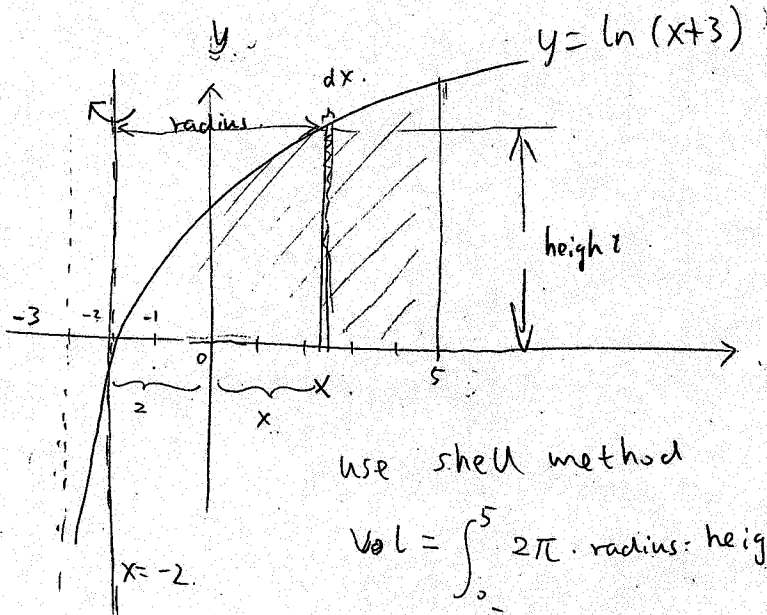 y
y = ln (x+3)
dx.
radius.
height
-3 -2 -1
0
5
2
x
x
use shell method
Vol = ∫₀⁵ 2π · radius · heig
x = -2.